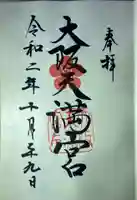 奉拝
大阪天満宮
令和二年十月廿九日